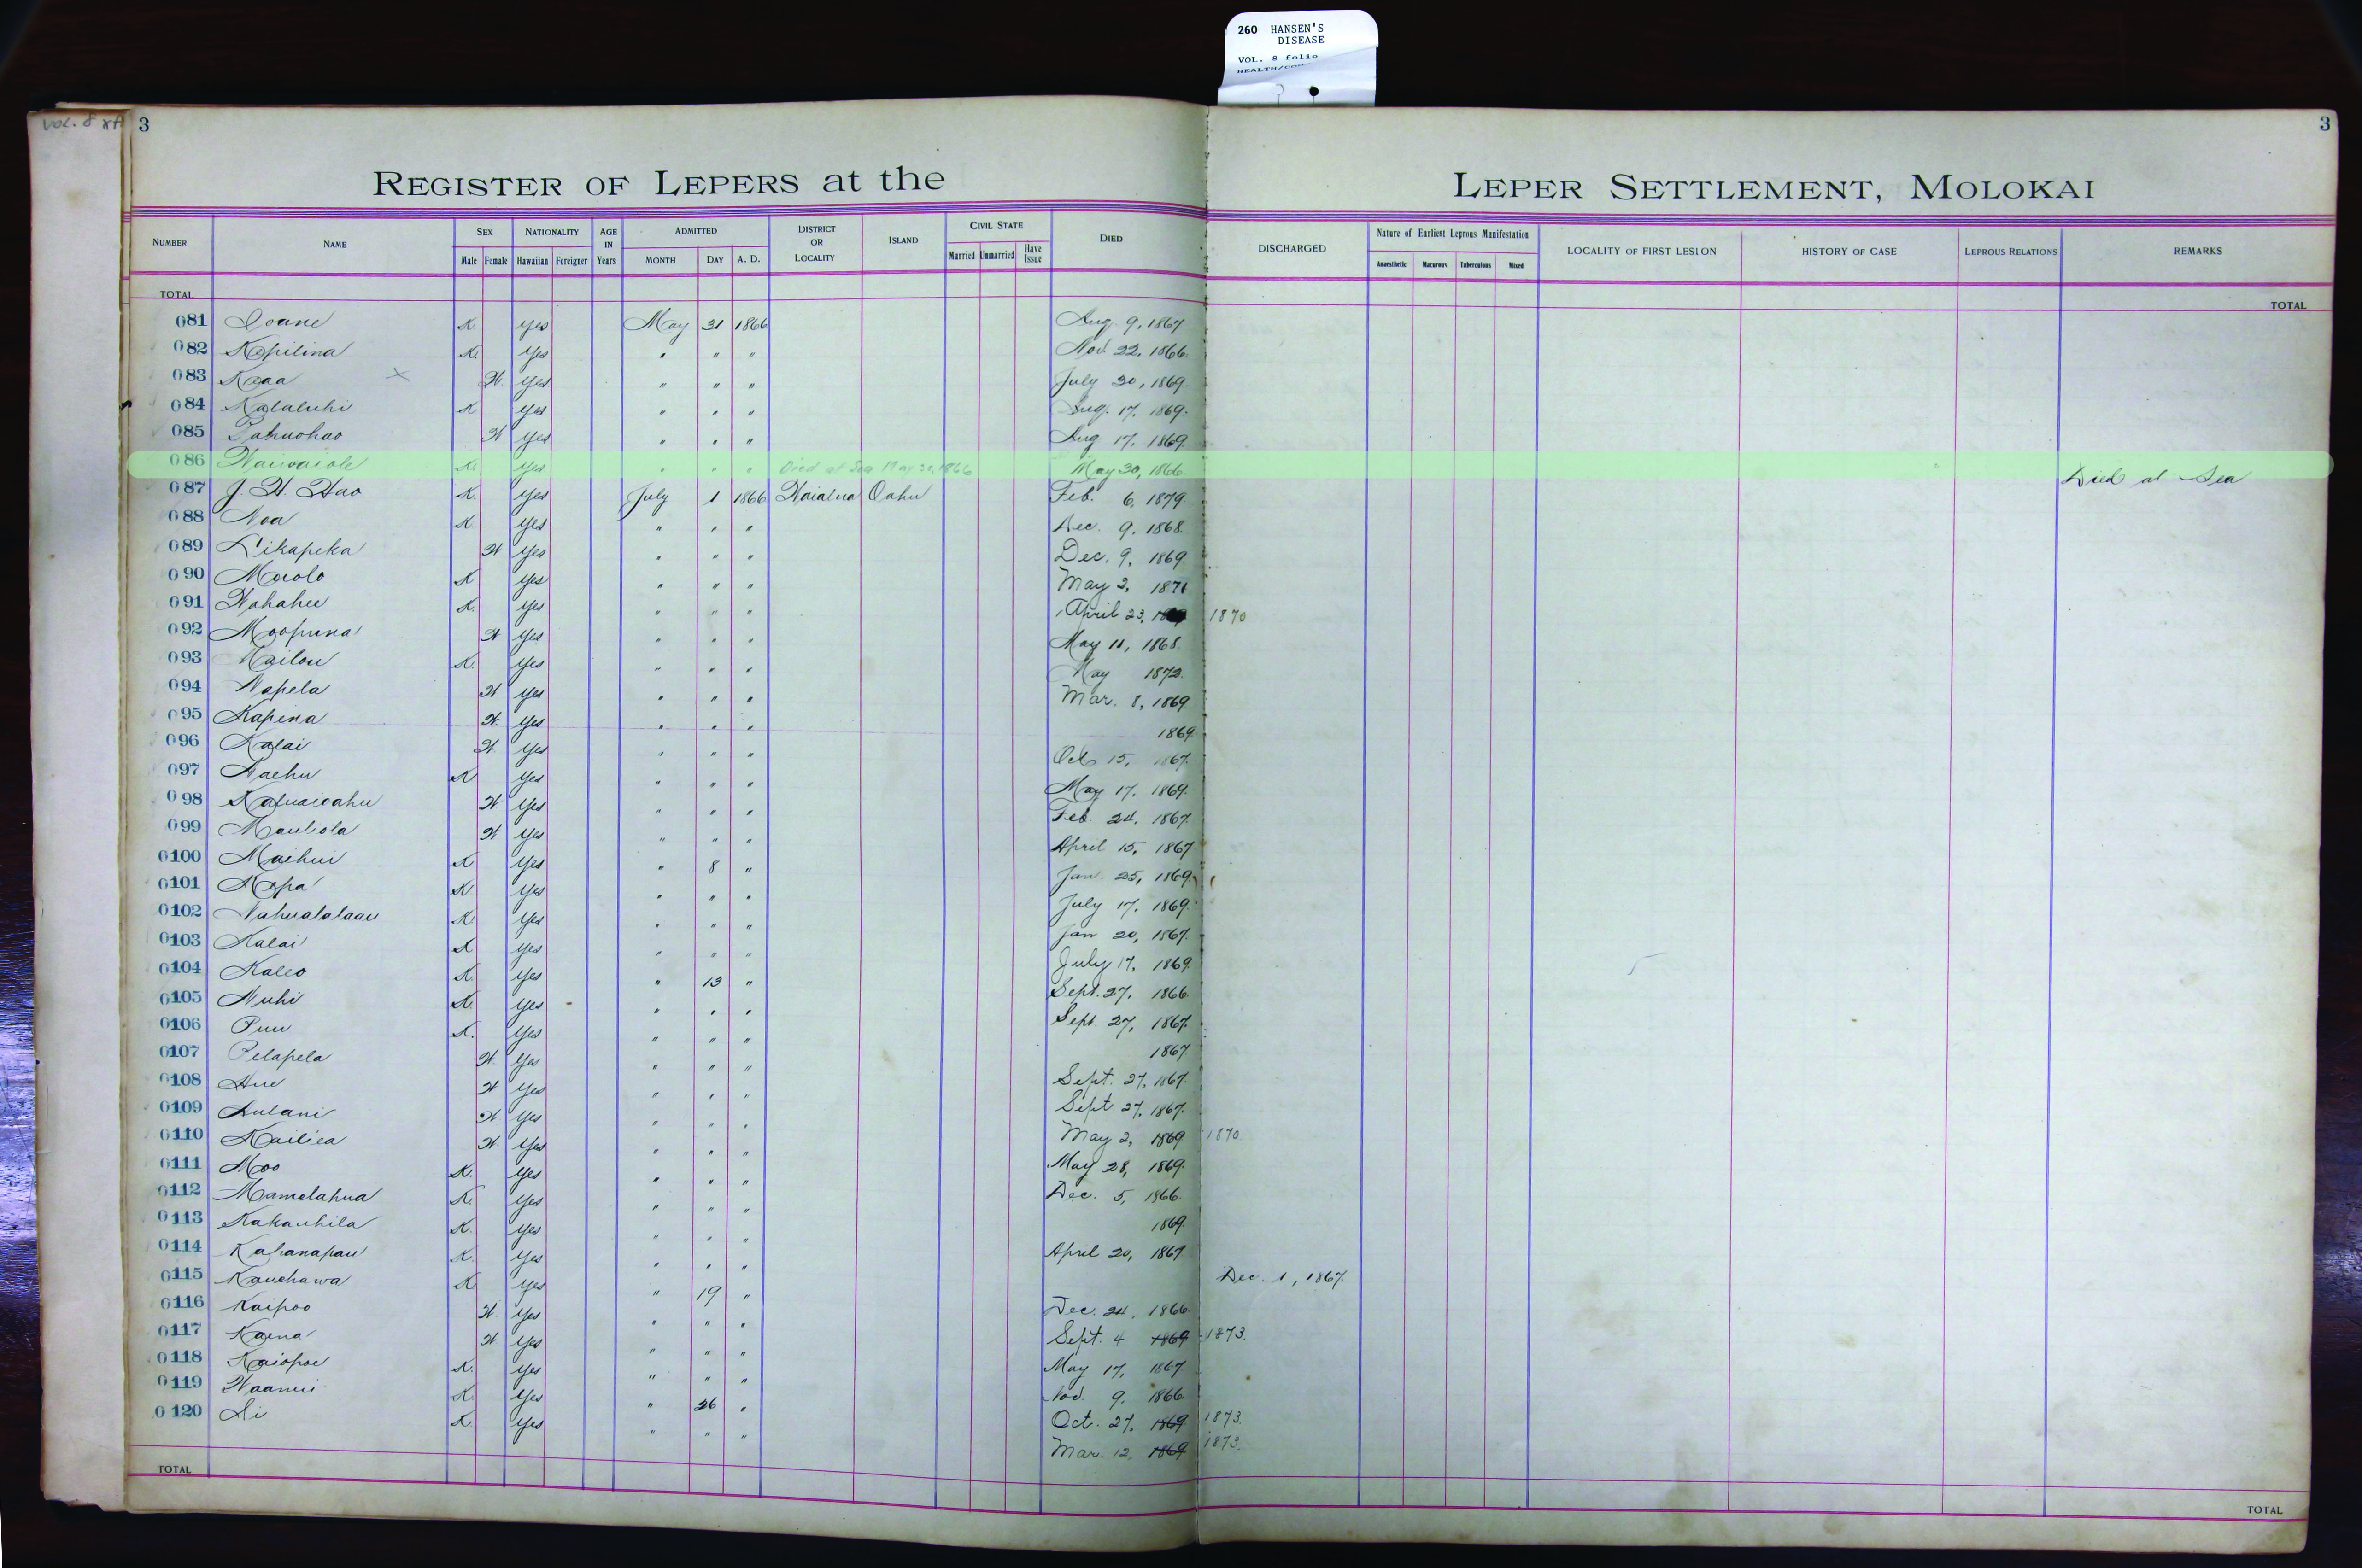 260 HANSEN'S
DISEASE
VOL. 8 folio
VOL. 8
3
3
REGISTER OF LEPERS at the LEPER SETTLEMENT, MOLOKAI
NUMBER NAME SEX Male Female NATIONALITY Hawaiian Foreigner AGE IN Years ADMITTED MONTH DAY A. D. DISTRICT OR LOCALITY ISLAND CIVIL STATE Married Unmarried Have Issue DIED DISCHARGED Nature of Earliest Leprous Manifestation Anaesthetic Macurous Tuberculous Mixed LOCALITY OF FIRST LESION HISTORY OF CASE LEPROUS RELATIONS REMARKS
TOTAL TOTAL
081 Ioane K. Yes May 31 1866 Aug. 9, 1867
082 Kapilina K. Yes " " " Nov. 22, 1866.
083 Kaaa W. Yes " " " July 30, 1869.
084 Kalaluhi K Yes " " " Aug. 17, 1869.
085 Pahuohao W Yes " " " Aug 17, 1869.
086 Waiwaiole K. Yes " " " Died at Sea May 30, 1866 May 30, 1866. Died at Sea
087 J. H. Hao K. Yes July 1 1866 Waialua Oahu Feb. 6, 1879
088 Noa K. Yes " " " Dec. 9, 1868.
089 Likapeka W Yes " " " Dec. 9, 1869
090 Maolo K Yes " " " May 2, 1871
091 Wahahee K. Yes " " " April 23, 1870
092 Moopuna W Yes " " " May 11, 1868.
093 Kailou K. Yes " " " May 1872.
094 Napela W Yes " " " Mar. 8, 1869
095 Kapina W. Yes " " " 1869.
096 Kalai W. Yes " " " Oct 15, 1867.
097 Naehu K Yes " " " May 17, 1869.
098 W Yes " " " Feb. 24, 1867.
099 Mauliola W Yes " " " April 15, 1867
0100 Maihui K Yes " 8 " Jan. 25, 1869.
0101 Napa K Yes " " " July 17, 1869.
0102 Nahualalaau K. Yes " " " Jan 20, 1867.
0103 Kalai K Yes " " " July 17, 1869.
0104 Kaleo K. Yes " 13 " Sept. 27, 1866.
0105 Nuhi K. Yes " " " Sept. 27, 1867.
0106 Puu K. Yes " " " 1867
0107 Pelapela W Yes " " " Sept. 27, 1867.
0108 Hue W Yes " " " Sept 27, 1867.
0109 Aulani W Yes " " " May 2, 1869 1870.
0110 Kailiea W. Yes " " " May 28, 1869.
0111 Moo K. Yes " " " Dec. 5, 1866.
0112 Mamelahua K. Yes " " " 1869.
0113 Kakauhila K. Yes " " " April 20, 1867
0114 Kahanapau K. Yes " " " Dec. 1, 1867.
0115 Kauehawa K. Yes " 19 " Dec. 24, 1866.
0116 Kaipoo W Yes " " " Sept. 4 1869 1873.
0117 Kaena W Yes " " " May 17, 1867
0118 Kaiopoe K. Yes " " " Nov. 9, 1866.
0119 Waanui K. Yes " 26 " Oct. 27, 1869 1873.
0120 Li K. Yes " " " Mar. 12, 1869 1873.
TOTAL TOTAL